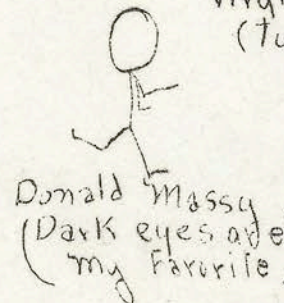 (tu
Donald Massy
(Dark eyes are
my Favorite